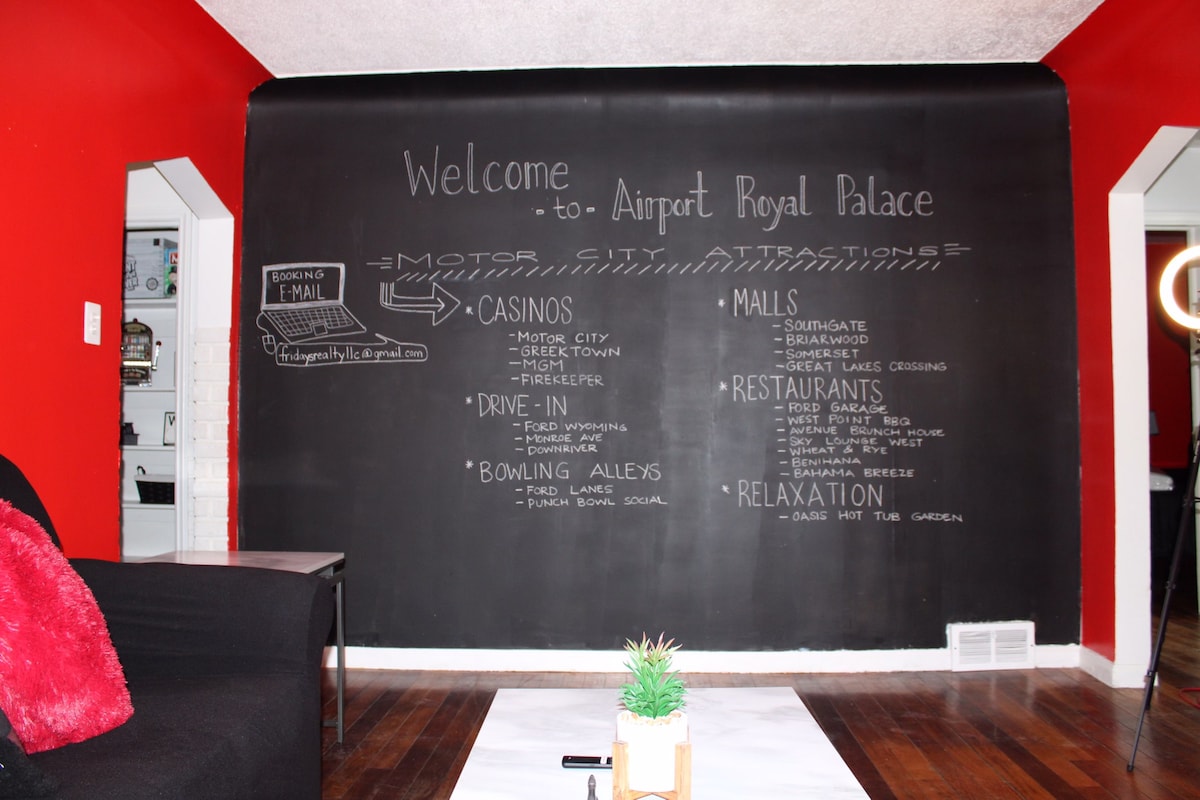 Welcome
-to- Airport Royal Palace
MOTOR CITY ATTRACTIONS
BOOKING
E-MAIL
fridaysrealtyllc@gmail.com
* CASINOS
- MOTOR CITY
- GREEKTOWN
- MGM
- FIREKEEPER
* DRIVE-IN
- FORD WYOMING
- MONROE AVE
- DOWNRIVER
* BOWLING ALLEYS
- FORD LANES
- PUNCH BOWL SOCIAL
* MALLS
- SOUTHGATE
- BRIARWOOD
- SOMERSET
- GREAT LAKES CROSSING
* RESTAURANTS
- FORD GARAGE
- WEST POINT BBQ
- AVENUE BRUNCH HOUSE
- SKY LOUNGE WEST
- WHEAT & RYE
- BENIHANA
- BAHAMA BREEZE
* RELAXATION
- OASIS HOT TUB GARDEN